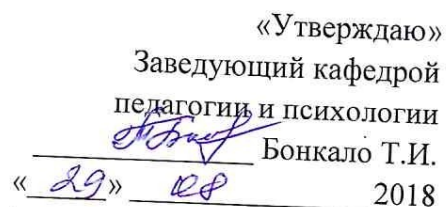 «Утверждаю»
Заведующий кафедрой
педагогии и психологии
Бонкало Т.И.
«29» 08 2018